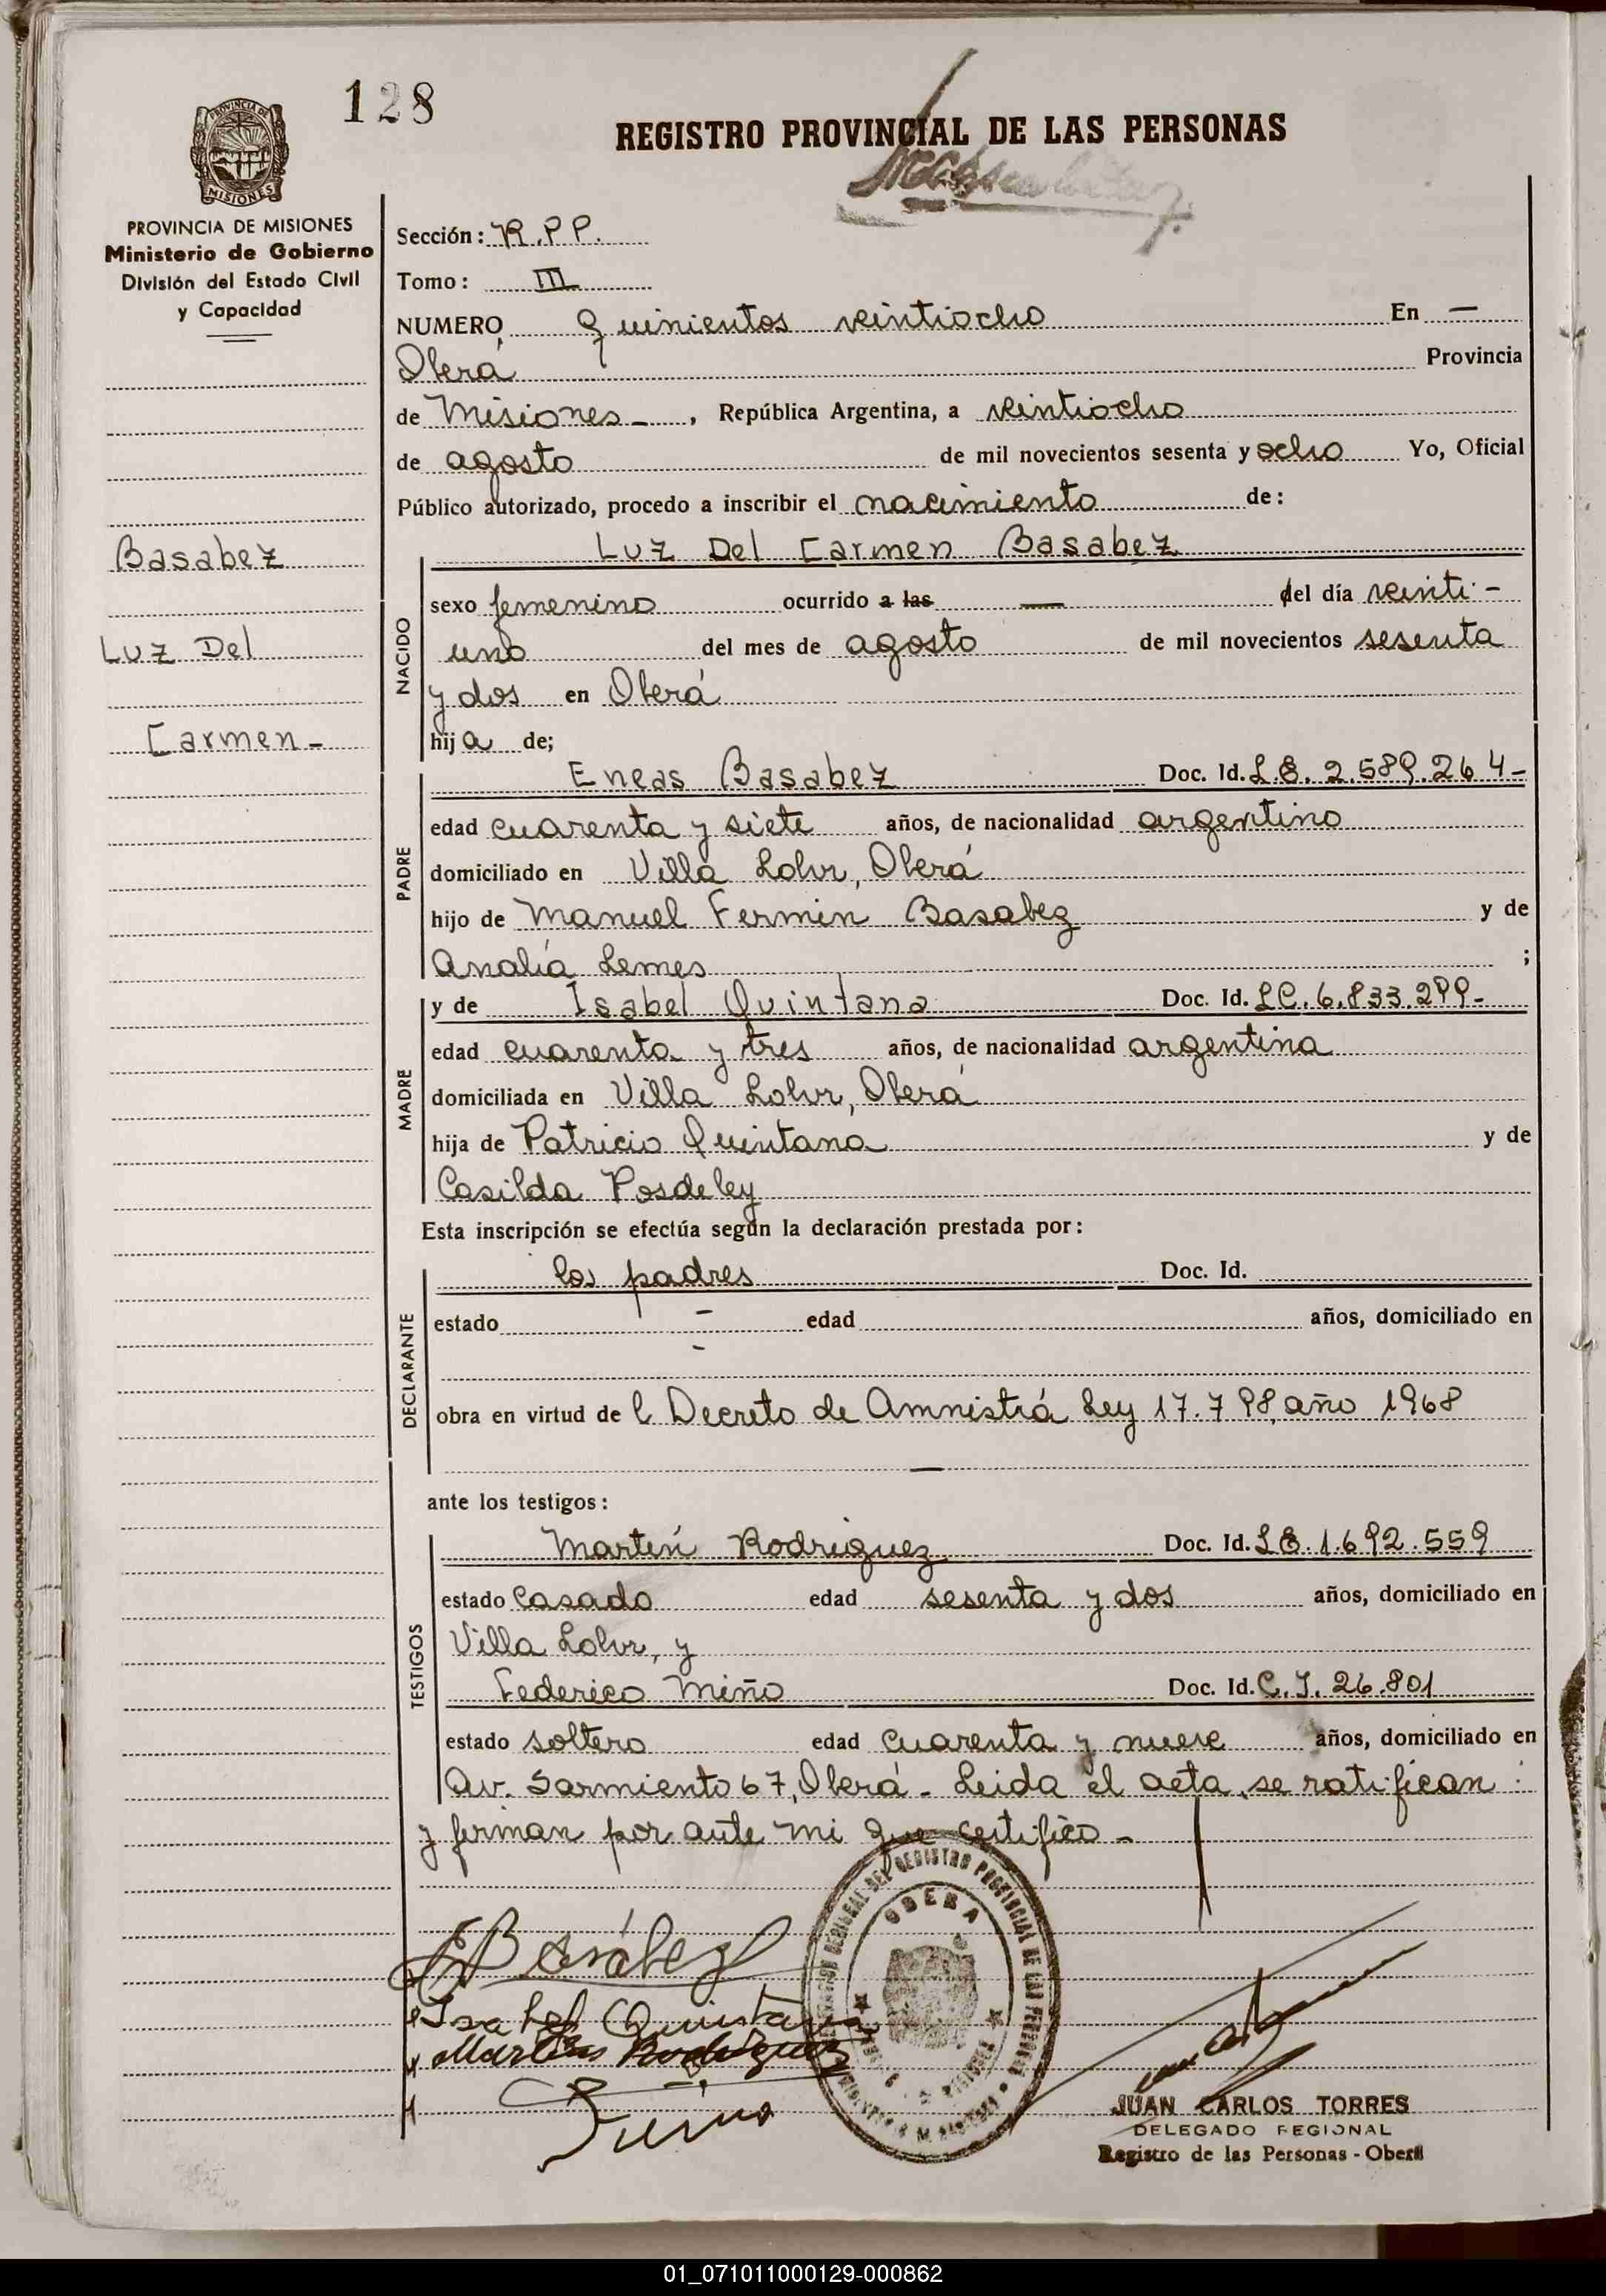 128
REGISTRO PROVINCIAL DE LAS PERSONAS
PROVINCIA DE MISIONES
Ministerio de Gobierno
División del Estado Civil
y Capacidad
Basabez
Luz Del
Carmen -
Sección: R.P.P.
Tomo: III
NUMERO Quinientos veintiocho En —
Oberá Provincia
de Misiones - , República Argentina, a veintiocho
de agosto de mil novecientos sesenta y ocho Yo, Oficial
Público autorizado, procedo a inscribir el nacimiento de:
Luz Del Carmen Basabez
NACIDO
sexo femenino ocurrido a las — del día veinti-
uno del mes de agosto de mil novecientos sesenta
y dos en Oberá
hija de;
Eneas Basabez Doc. Id. L.E. 2.589.264-
PADRE
edad cuarenta y siete años, de nacionalidad argentino
domiciliado en Villa Lohr, Oberá
hijo de Manuel Fermin Basabez y de
Analía Lemes ;
y de Isabel Quintana Doc. Id. LC. 6.833.299-
MADRE
edad cuarenta y tres años, de nacionalidad argentina
domiciliada en Villa Lohr, Oberá
hija de Patricio Quintana y de
Casilda Posdeley
Esta inscripción se efectúa según la declaración prestada por:
los padres Doc. Id.
DECLARANTE
estado - edad años, domiciliado en
-
obra en virtud de l Decreto de Amnistiá Ley 17.798, año 1968
—
ante los testigos:
TESTIGOS
Martín Rodriguez Doc. Id. LE. 1.692.559
estado casado edad sesenta y dos años, domiciliado en
Villa Lohr, y
Federico Miño Doc. Id. C.I. 26.801
estado soltero edad cuarenta y nueve años, domiciliado en
Av. Sarmiento 67, Oberá - Leida el acta, se ratifican
y firman por ante mi que certifico -
EBasábez
Isabel Quintana
Martin Rodriguez
OBERA
JUAN CARLOS TORRES
DELEGADO REGIONAL
Registro de las Personas - Oberá
01_071011000129-000862